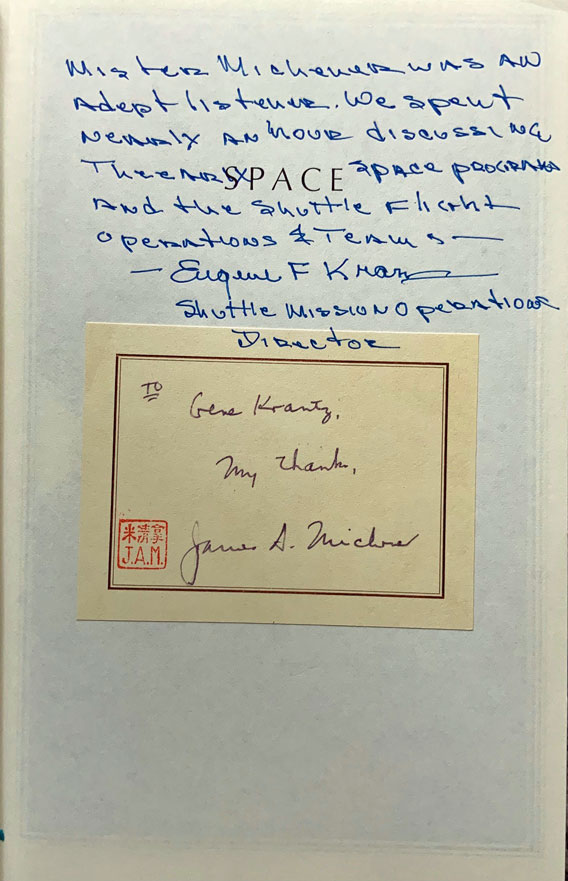 Mister Michener was an
adept listener. We spent
nearly an hour discussing
The early space program
SPACE
and the Shuttle Flight
Operations & Teams —
— Eugene F Kranz
Shuttle Mission Operations
Director
To
Gene Krantz,
My thanks,
James A. Michener
米清拿
J.A.M.